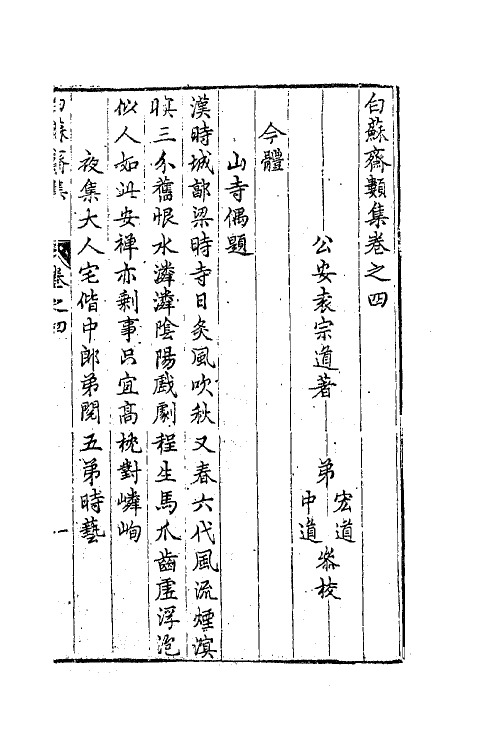 白蘇齋類集卷之四
公安袁宗道著 弟 宏道 中道 參校
今體
山寺偶題
漢時城郭梁時寺日炙風吹秋又春六代風流煙溟
暝三分舊恨水潾潾陰陽戲劇程生馬爪齒虛浮泡
似人如此安禪亦剩事只宜高枕對嶙峋
夜集大人宅偕中郎弟閱五弟時藝
白蘇齋集 卷之四 一